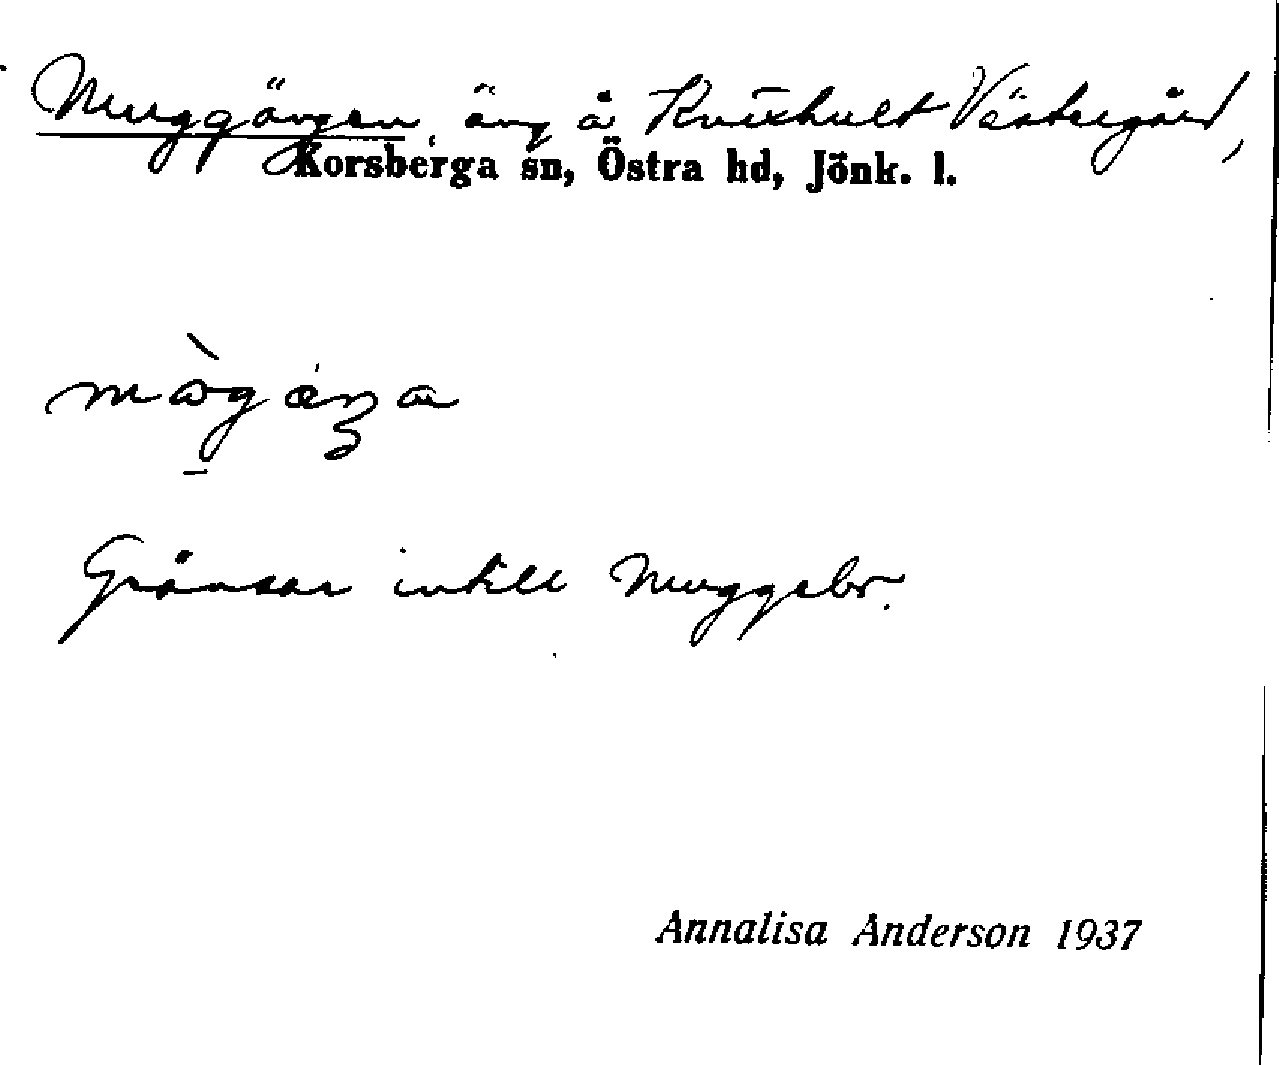 Muggängen, äng å Kvishult Västergård,
Korsberga sn, Östra hd, Jönk. l.
Gränsar intill Muggebr.
Annalisa Anderson 1937